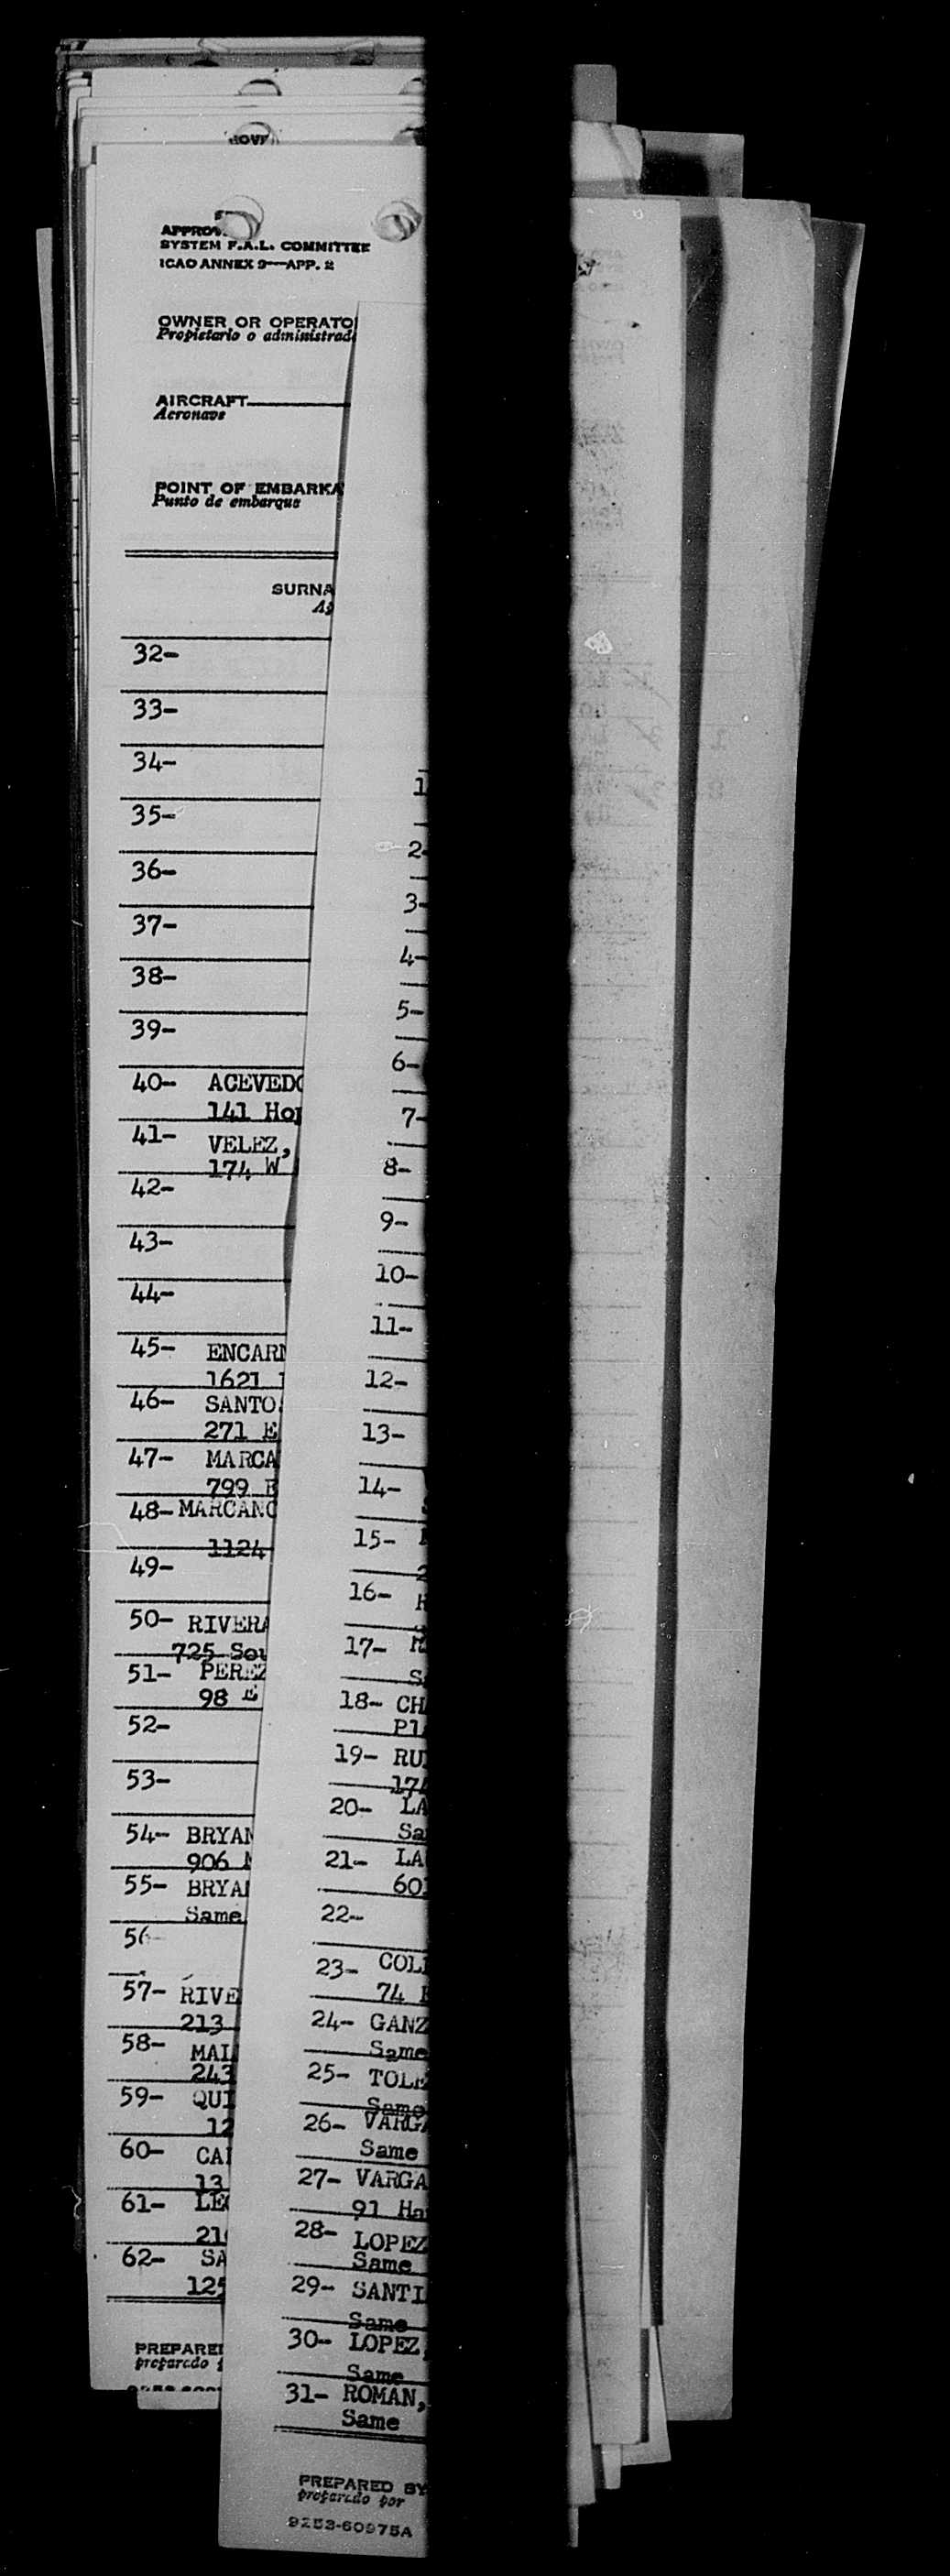 SYSTEM F.A.L. COMMITTEE
ICAO ANNEX 9—APP. 2
OWNER OR OPERATO
Propietario o administrad
AIRCRAFT
Aeronave
POINT OF EMBARKA
Punto de embarque
SURNA
32-
33-
34-
35-
36-
37-
38-
39-
40- ACEVEDO
141 Hop
41- VELEZ,
174 W
42-
43-
44-
45- ENCARN
1621
46- SANTO
271 E
47- MARCA
799 E
48- MARCANO
1124
49-
50- RIVERA
725 Sou
51- PEREZ
98 E
52-
53-
54- BRYAN
906
55- BRYAN
Same
56-
57- RIVE
213
58- MAL
243
59- QUI
12
60- CA
13
61- LE
21
62- SA
125
PREPARED
preparado
1
2-
3-
4-
5-
6-
7-
8-
9-
10-
11-
12-
13-
14-
15-
16-
17-
18- CH
Pl
19- RU
174
20- LA
Sa
21- LA
601
22-
23- COL
74
24- GANZ
Same
25- TOLE
Same
26- VARGA
Same
27- VARGA
91 Ha
28- LOPEZ
Same
29- SANTI
Same
30- LOPEZ,
Same
31- ROMAN,
Same
PREPARED BY
preparado por
9253-60975A